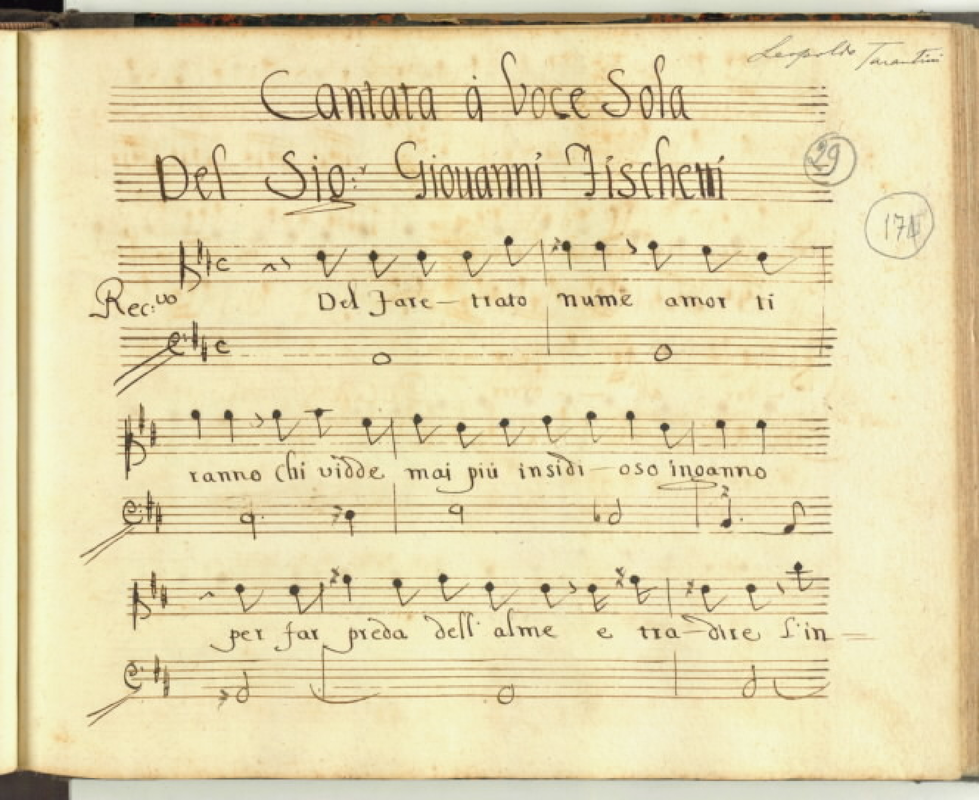 Leopoldo Tarantini
Cantata à Voce Sola
Del Sig:r Giovanni Fischetti
29
174
Rec:vo
Del fare-trato nume amor ti
ranno chi vidde mai più insidi-oso inganno
per far preda dell'alme e tra-dire l'in=